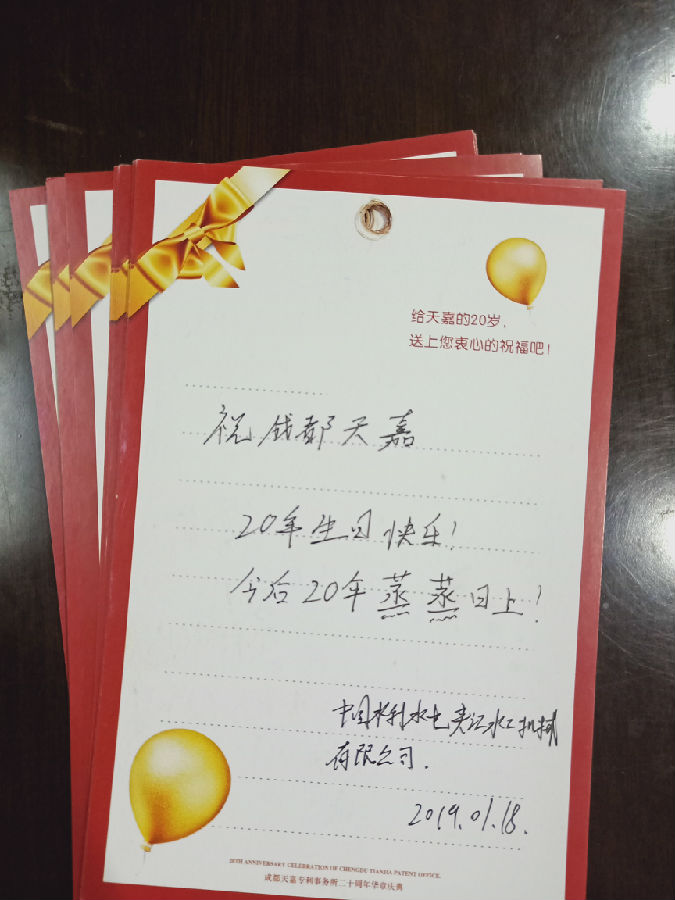 给天嘉的20岁，
送上您衷心的祝福吧！
祝成都天嘉
20年生日快乐！
今后20年蒸蒸日上！
中国水利水电夹江水工机械
有限公司.
2019.01.18.
20TH ANNIVERSARY CELEBRATION OF CHENGDU TIANJIA PATENT OFFICE.
成都天嘉专利事务所二十周年华章庆典